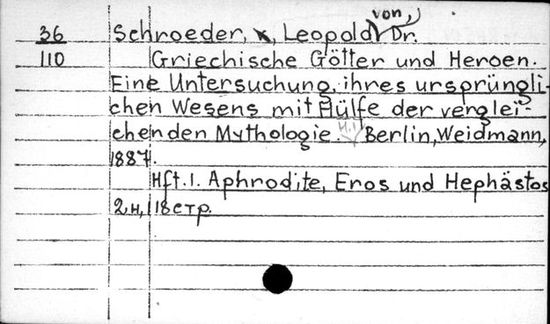 36 Schroeder, Leopold von, Dr.
110 Griechische Götter und Heroen.
Eine Untersuchung ihres ursprüngli-
chen Wesens mit Hülfe der verglei-
chenden Mythologie. H.1 Berlin, Weidmann,
1887.
Hft.1. Aphrodite, Eros und Hephästos
2н, 118 стр.